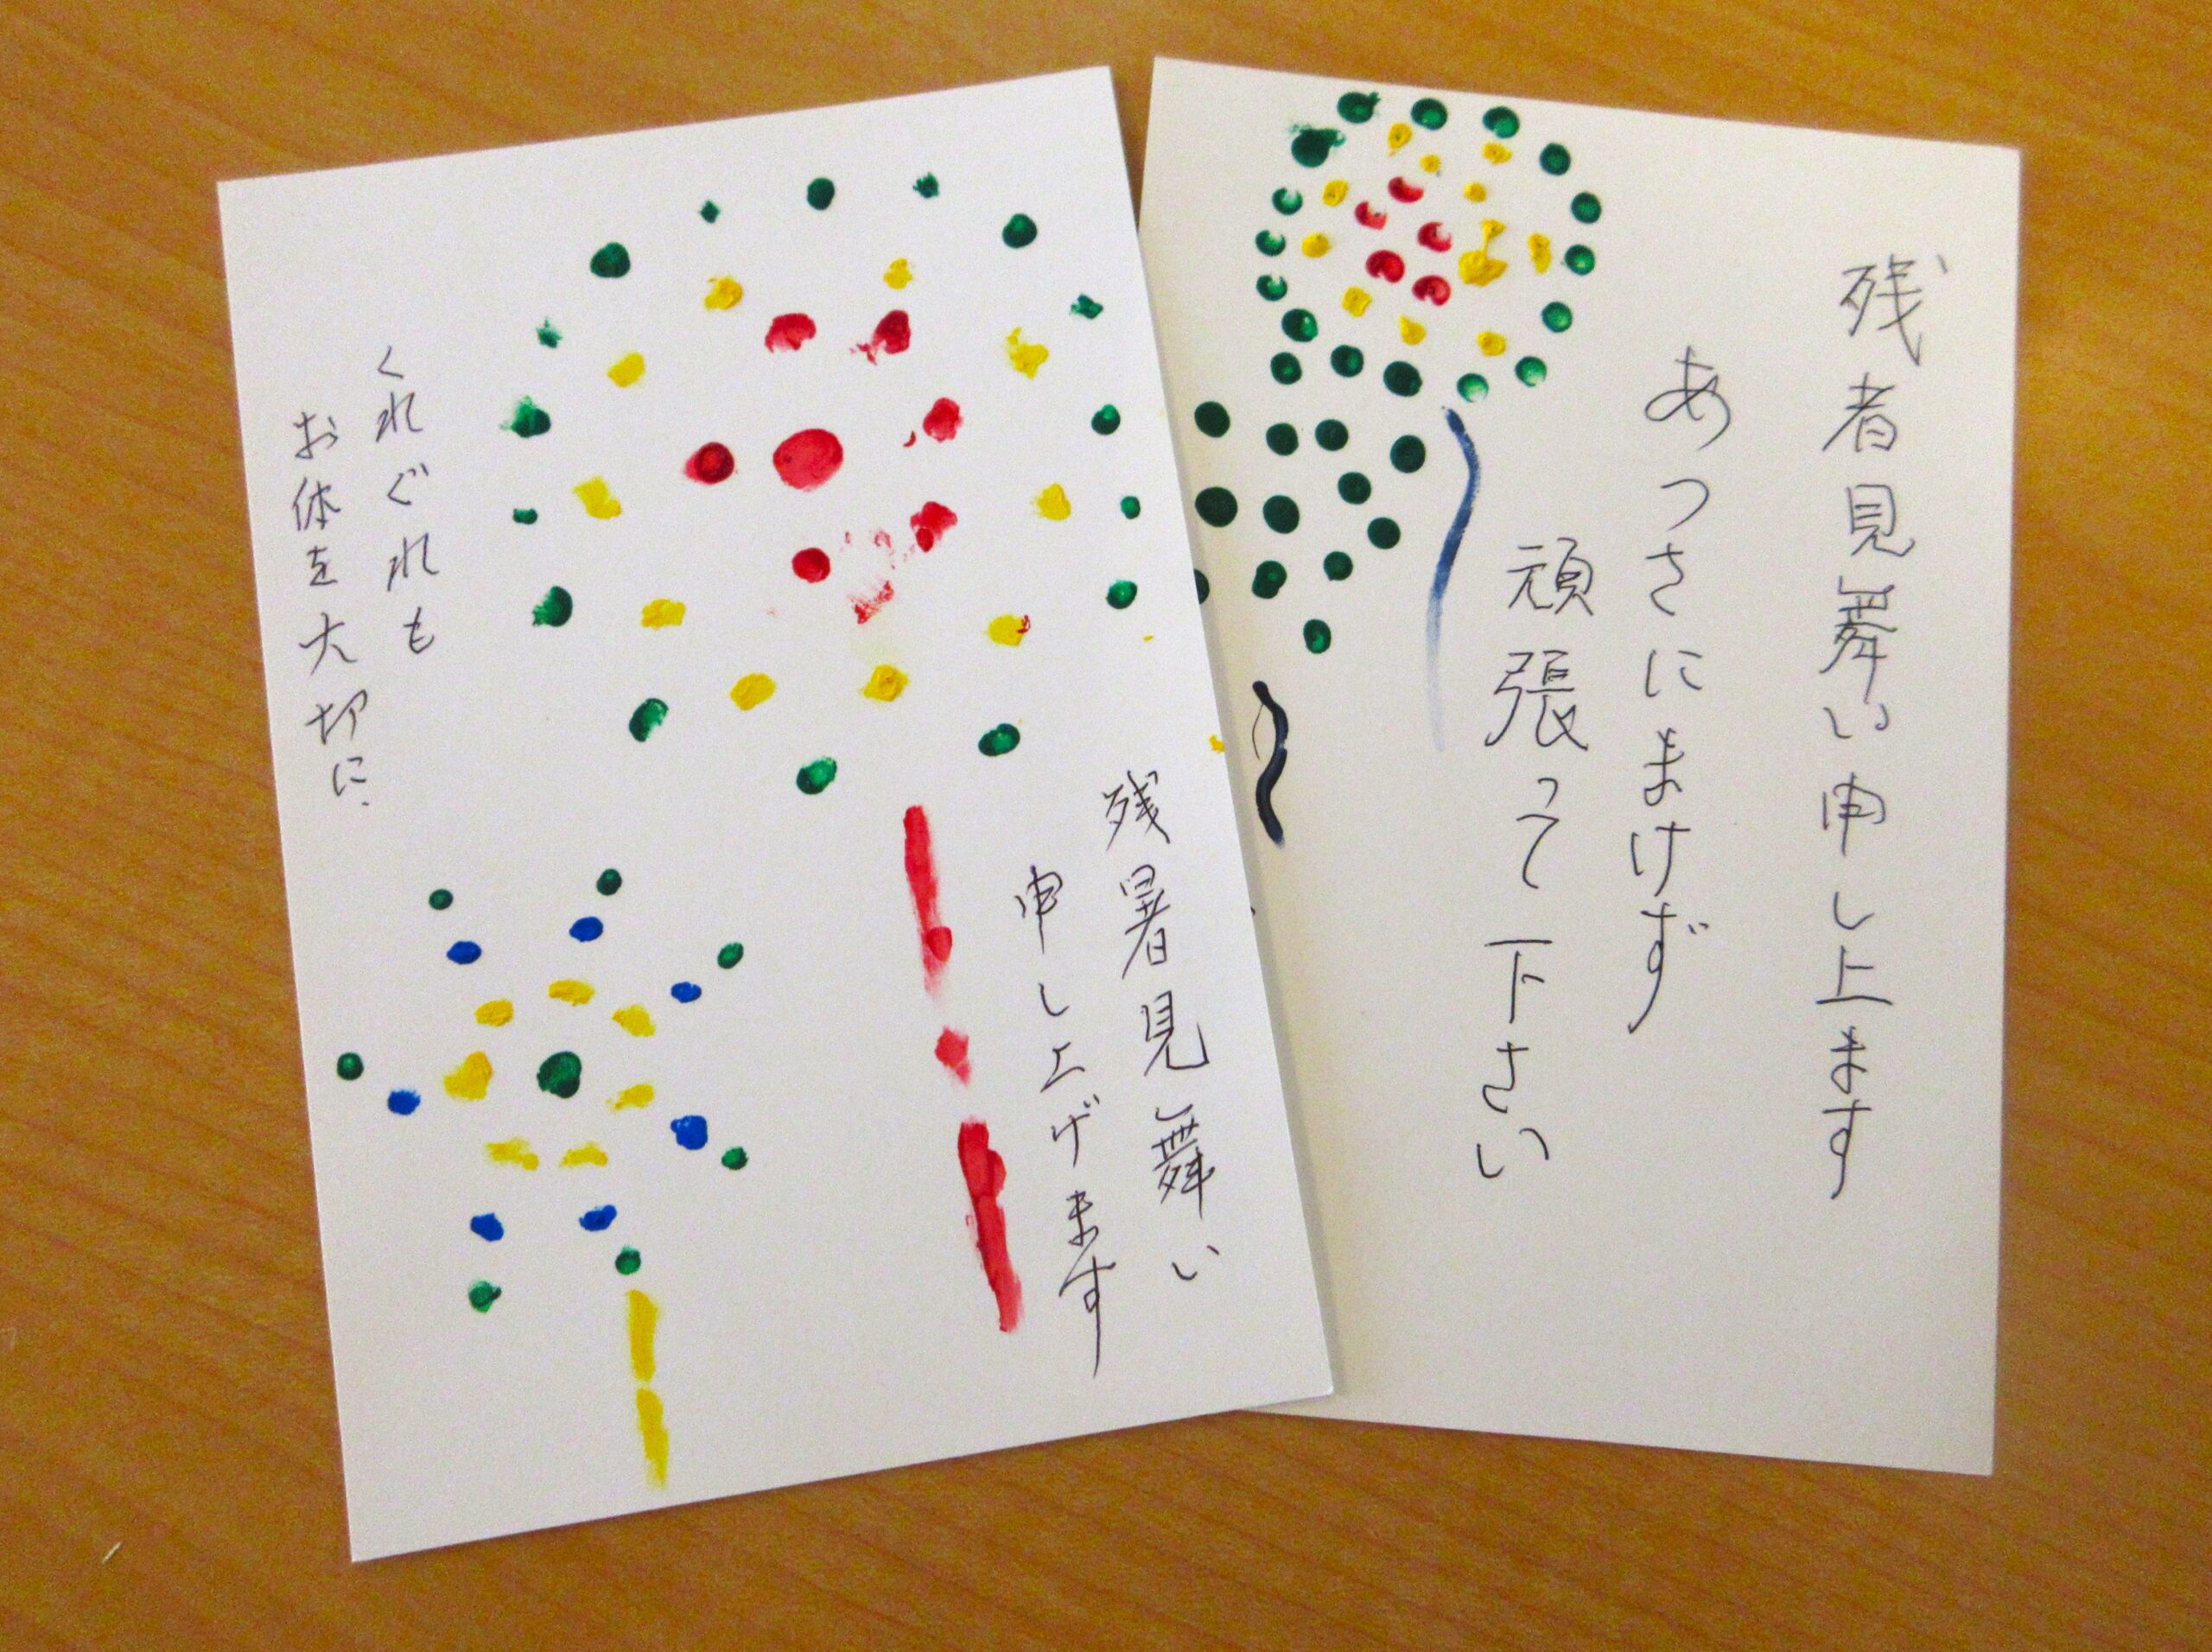 残暑見舞い
申し上げます
くれぐれも
お体を大切に.
残者見舞い申し上ます
あつさにまけず
頑張って下さい